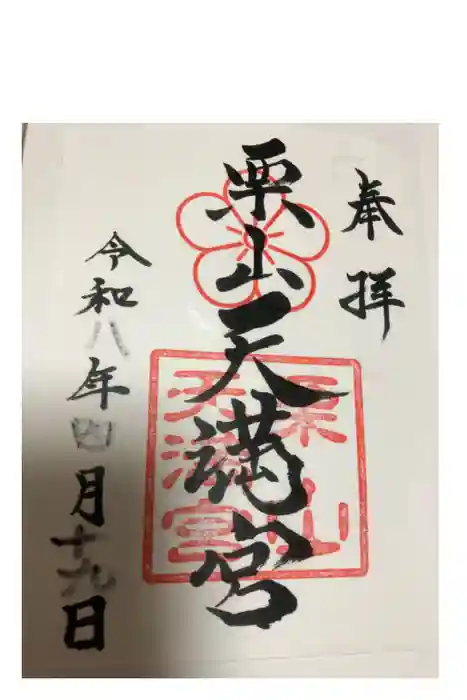 奉拝
栗山天満宮
栗山
天満宮
令和八年四月十九日